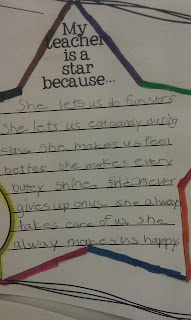 My
teacher
is a
star
because...
She lets us do fun stars
She lets us eat candy during
class. She makes us feel
better. she makes every
butey shine. She never
gives up on us. she alway
takes care of us. she
alway makes us happy.